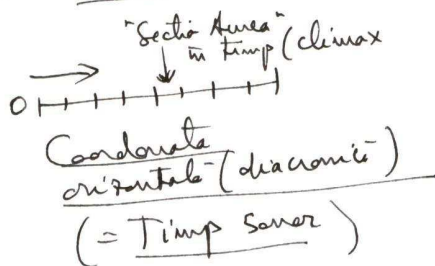 "Sectio Aurea"
în timp (climax
0
Coordonata
orizontală (diacronică)
(= Timp sonor)